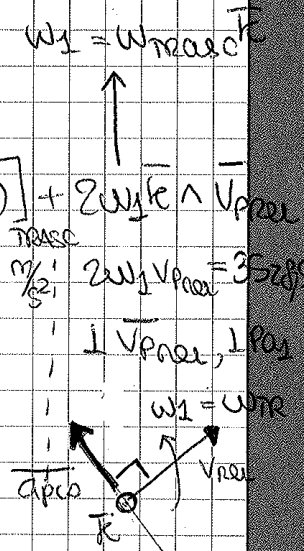 ω1 = ωTRASC k̄
)] + 2ω1 k̄ ∧ V̄PREL
TRASC
m/s² 2ω1 VPREL = 35
⊥ V̄PREL, ⊥ PO1
ω1 = ωTR
VREL
āPCO
k̄